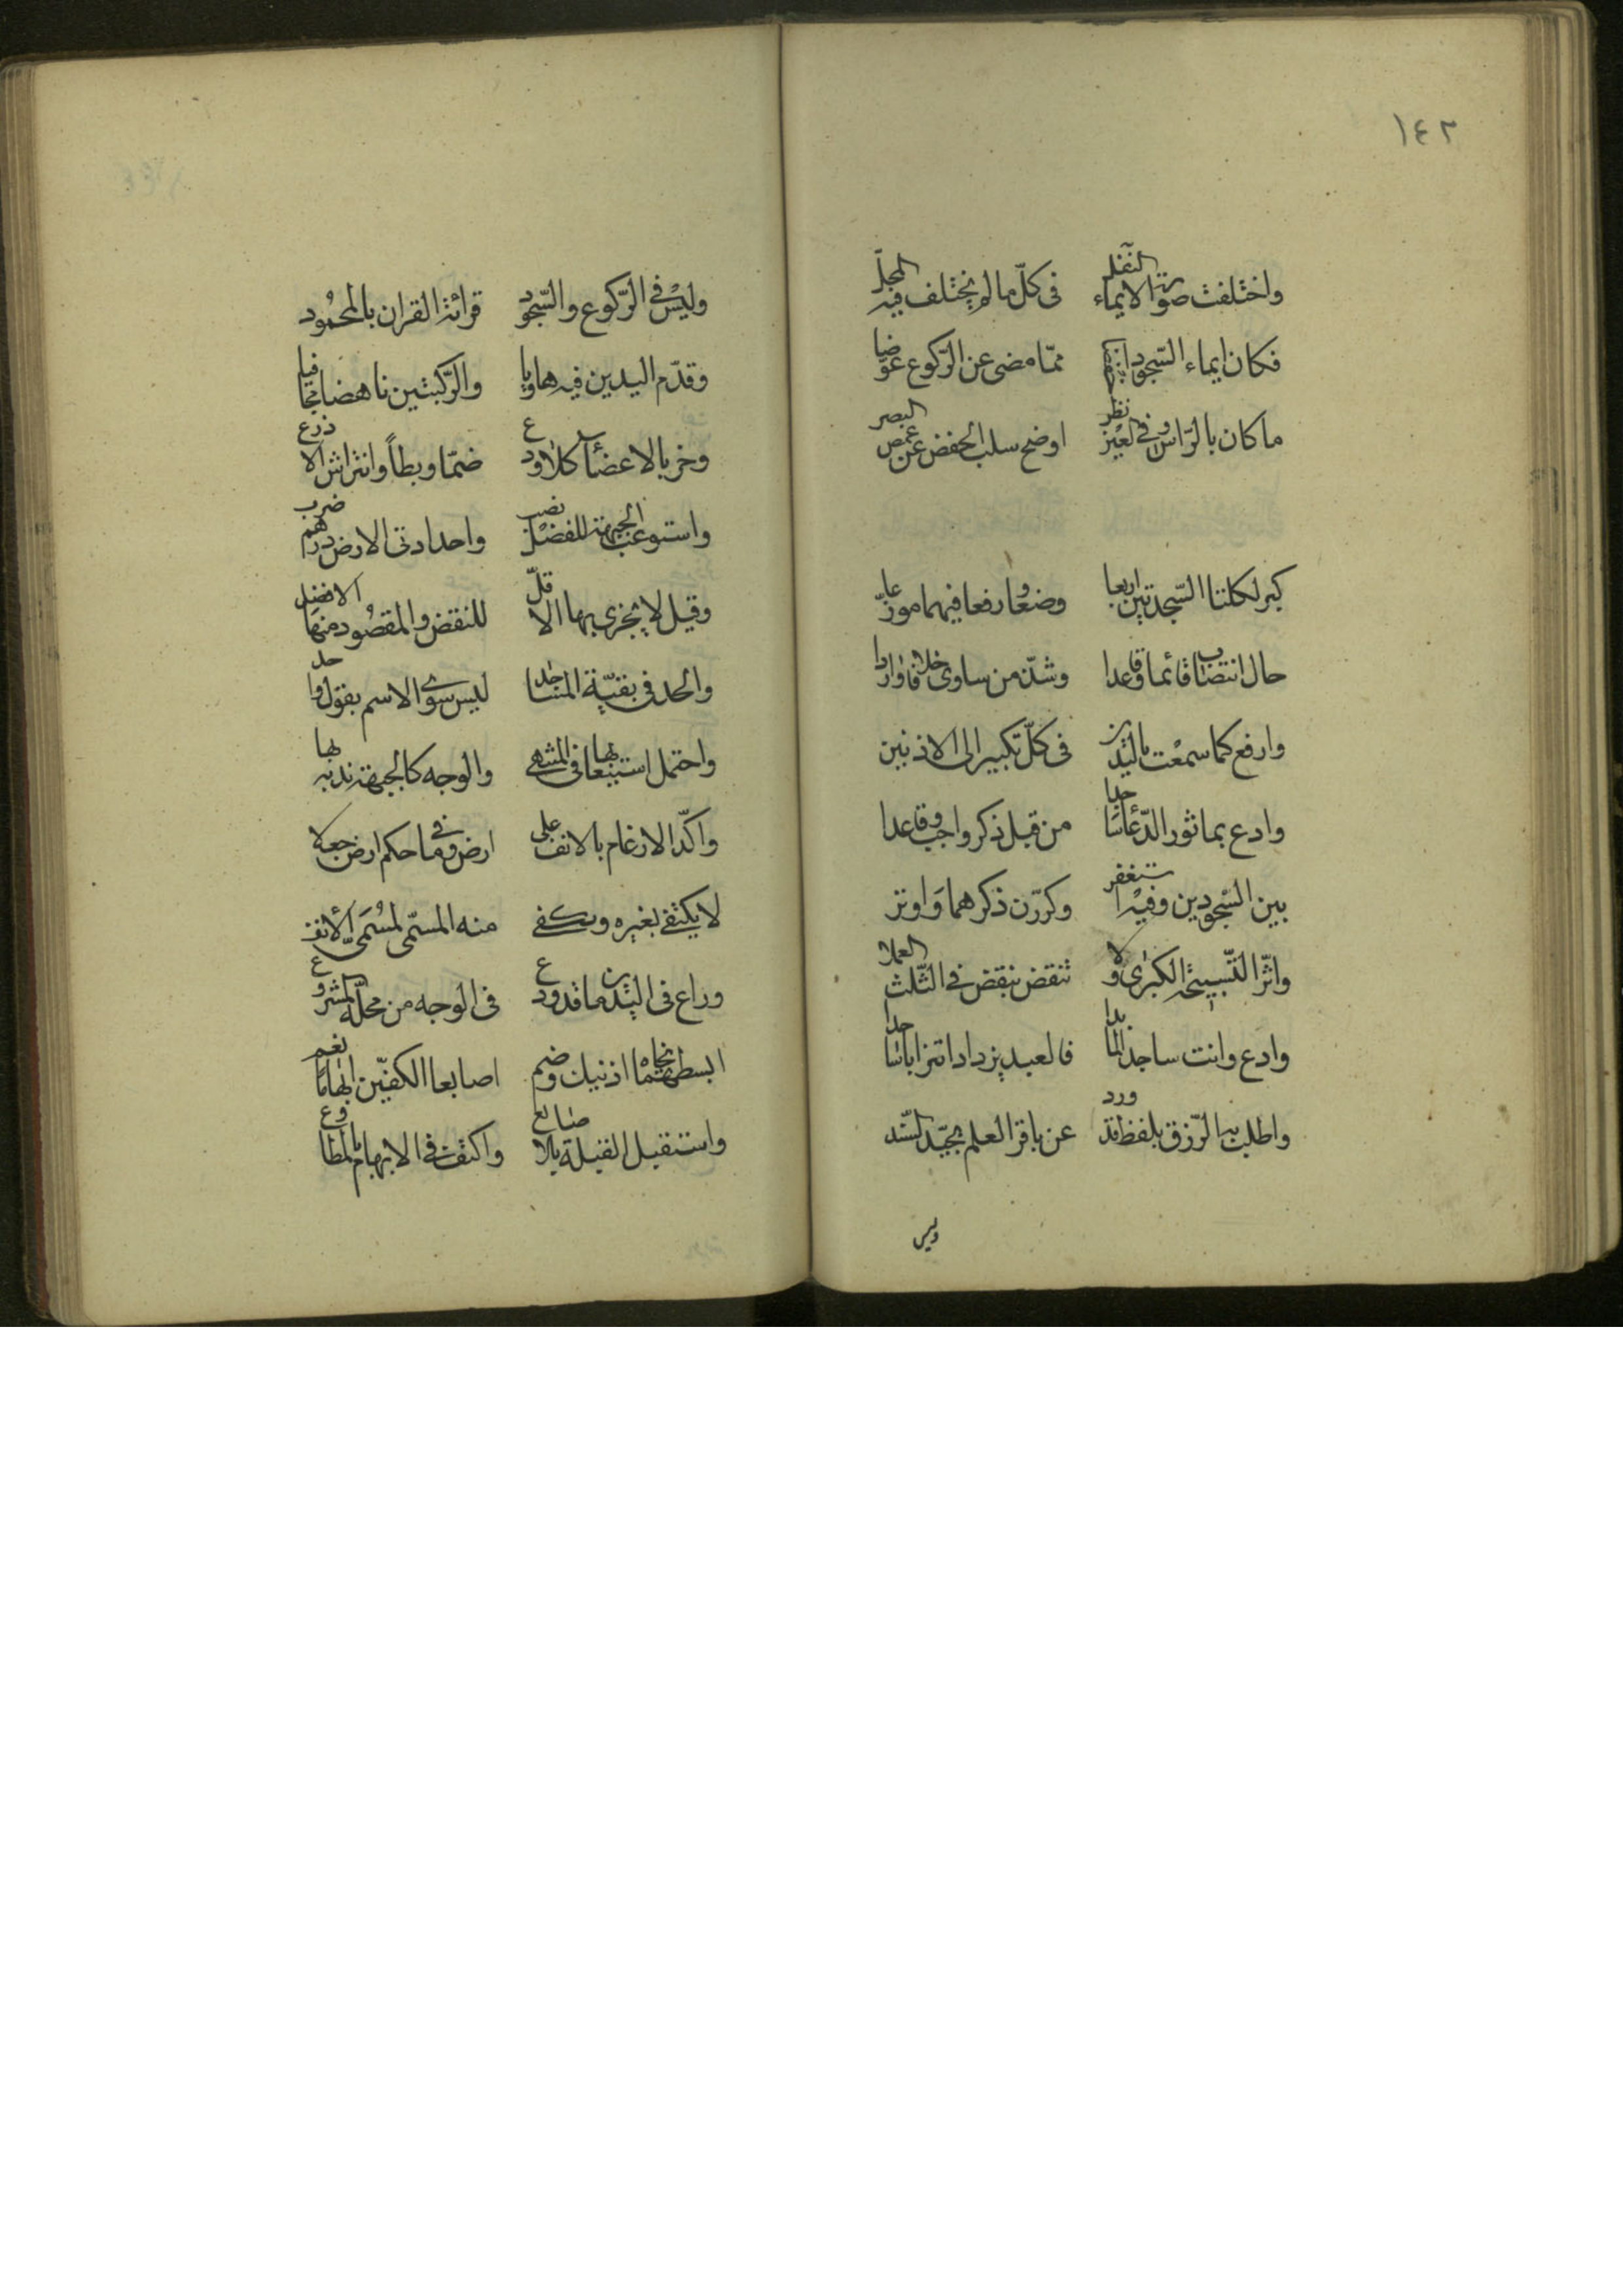 ١٤٢
واختلفت صورة الايماء النفل في كل ما لم يختلف فيه المحل
فكان ايماء السجود مما مضى عن الركوع عوضا
ما كان بالراس وفي العين نظر اوضح سلب الخفض عن غمض البصر
كبر لكلتا السجدتين اربعا وضعا ورفعا فيهما موزعا
حال انتصاب قائما وقاعدا وشذ من ساوى خلافا واردا
وارفع كما سمعت باليدين في كل تكبير الى الاذنين
وادع بماثور الدعاء ساجدا من قبل ذكر واجب وقاعدا
بين السجودين وفيه استغفر وكررن ذكرهما واوتر
واثر التسبيحة الكبرى ولا تنقض بنقض في الثلث العملا
وادع وانت ساجد لما بدا فالعبد يزداد اقترابا ساجدا
واطلب به الرزق بلفظ قد ورد عن باقر العلم بجيد السند
وليس
وليس في الركوع والسجود قرائة القران بالمحمود
وقدم اليدين فيه هاويا والركبتين ناهضا مجافيا
وخر بالاعضاء كلا ودع ضما وبطا وافتراش الاذرع
واستوعب الجبهة للفضل نصب واحدا دنى الارض درهم ضرب
وقيل لا يجزى بها الا قل للنقض والمقصود منها الافضل
والحد في بقية المساجد ليس سوى الاسم بقول واحد
واحتمل استيعابها في المشهى والوجه كالجبهة ندبه لها
واكد الارغام بالانف على ارض وفي ما حكم ارض جعلا
لا يكتفى بغيره ويكفى منه المسمى لمسمى الانف
وراع في اليدين ما قد ودع في الوجه من محله المشروع
ابسطهما تجاه اذنيك وضم اصابعا الكفين ابهاما نعم
واستقبل القبلة بالاصابع واكتف في الابهام بالمطاوع